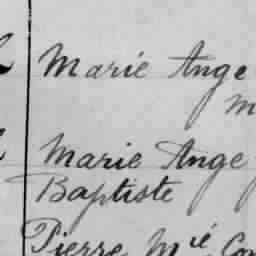 Marie Ange
Marie Ange
Baptiste
Pierre Mié